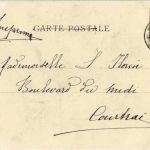 CARTE POSTALE
Imprimé
Mademoiselle J.
Boulevard du midi
Courtrai